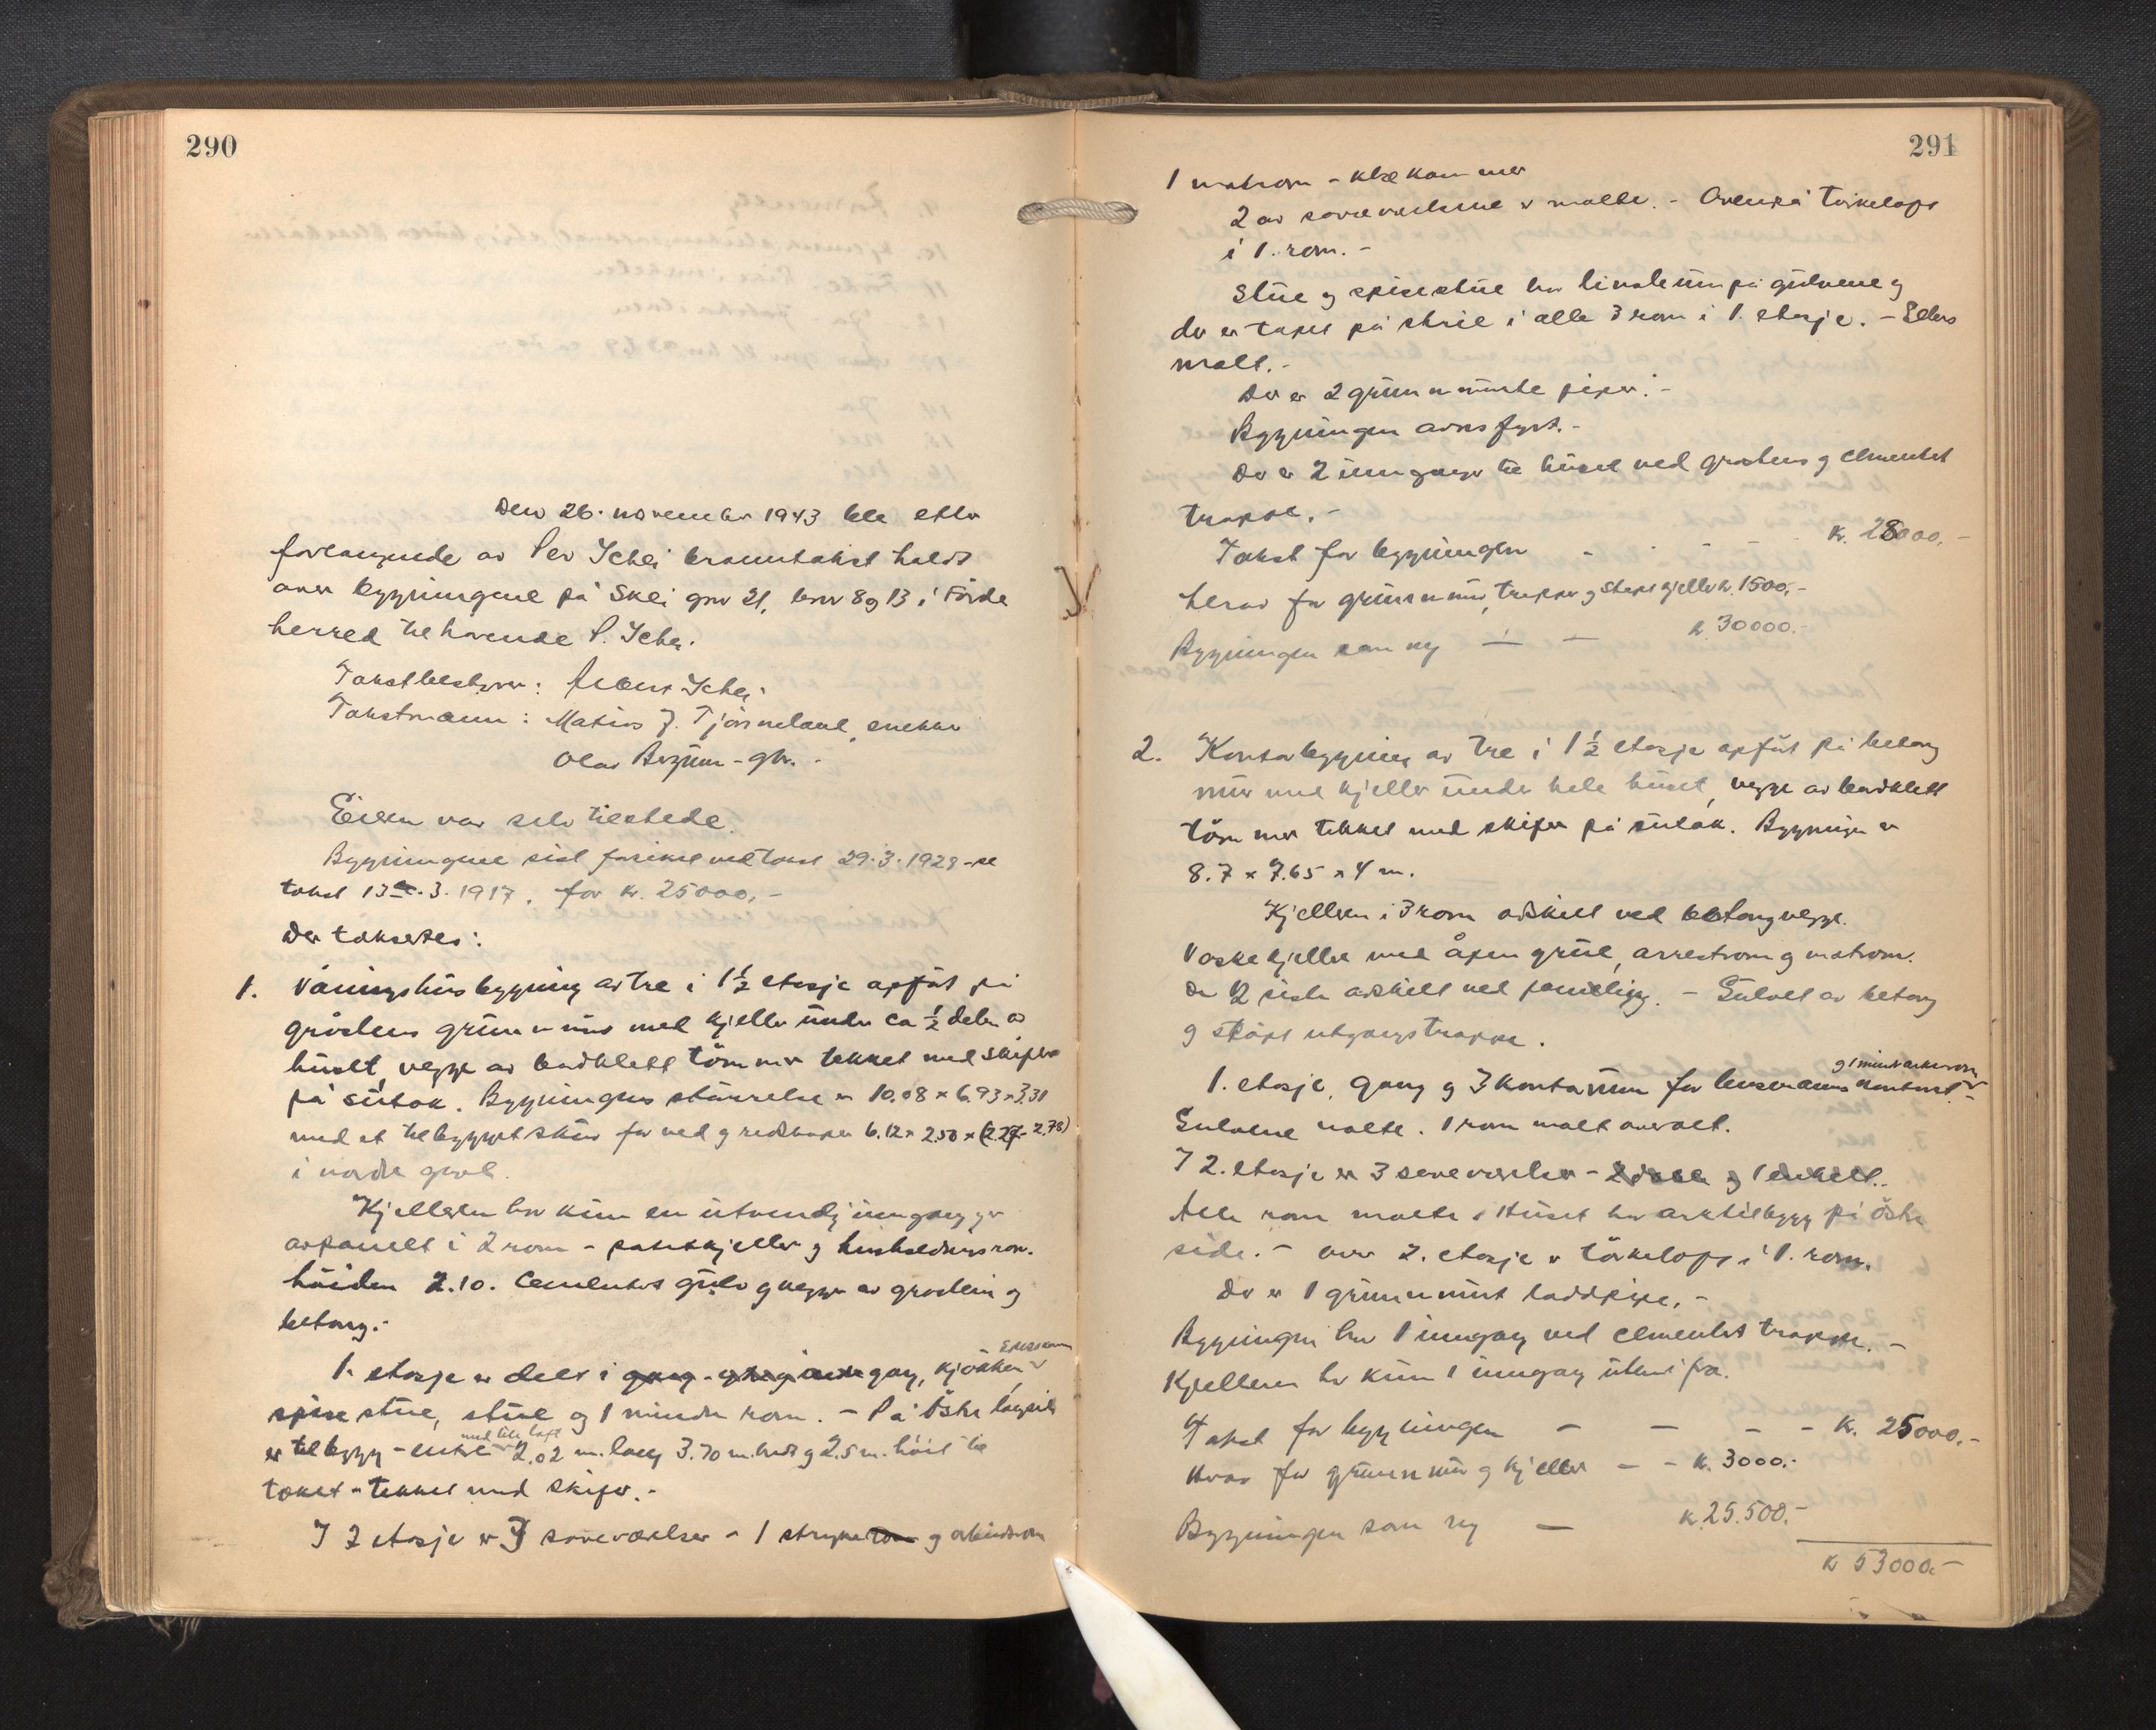 290
Den 26. november 1943 ble etter
forlangende av Per Schei branntakst holdt
over bygningene på Skei gnr 21, bnr 8 og 13 i Förde
herred tilhörende P. Schei.
Takstbestyrer: Schei
Takstmenn: Matias J. Tjönneland, snekker
Olav Bergum - gbr. -
Eieren var selv tilstede.
Bygningene sist forsikret ved takst 29.3.1928 - se
takst 13de.3.1917, for kr. 25000,-
Der takseres:
1. Våningshusbygning av tre i 1½ etasje opfört på
gråstens grunnmur med kjeller under ca ½ delen av
huset, vegger av bordkledt tömmer tekket med skifer
på sutak. Bygningens störrelse er 10.08 x 6.93 x 3.31
med et tilbygget skur for ved og redskaper 6.12 x 2.50 x (2.27 - 2.78)
i nordre gavl.
Kjelleren har kun en utvendig inngang og er
avpanelt i 2 rom - potetkjeller og husholdningsrom.
höiden 2.10. Cementert gulv og vegger av gråstein og
betong.-
1. etasje er delt i gang, kjökken,
spisestue, stue og 1 mindre rom. - På östre langside
er tilbygg - entre med lite loft 2.02 m. lang 3.70 m. bredt og 2.5 m. höit til
taket - tekket med skifer.-
I 2 etasje er 3 soveværelser - 1 strykerom og arbeidsrom
291
1 matrom - klækammer
2 av soveværelsene er malte. - Ovenpå törkeloft
i 1. rom. -
Stue og spisestue har linoleum på gulvene og
der er tapet på strie i alle 3 rom i 1. etasje. - Ellers
malt.-
Der er 2 grunnmurte piper.-
Bygningen ovnsfyrt.-
Der er 2 innganger til huset ved gråstens og cementert
trappe.-
Takst for bygningen - - - - kr. 28000.-
herav for grunnmur, trapper og støpt kjeller kr. 1500,-
Bygningen som ny - - kr. 30000.-
2. Kontorbygning av tre i 1½ etasje opfört på betong
mur med kjeller under hele huset, vegger av bordkledt
tömmer tekket med skifer på sutak. Bygningen er
8.7 x 7.65 x 4 m.
Kjelleren i 3 rom adskilt ved betongvegger.
Vaskekjeller med åpen grue, arrestrom og matrom.
De 2 siste adskilt ved panelvegg. - Gulvet av betong
og støpt utgangstrappe.
1. etasje, gang og 3 kontorrum for lensmannskontoret og 1 mindre arkivrom -
Gulvene malte. 1 rom malt overalt.
I 2. etasje er 3 soveværelser - 2 doble og 1 enkelt.
Alle rom malte. Huset har arktilbygg på östre
side. - over 2. etasje er törkeloft i 1. rom.
Der er 1 grunnmurt loddpipe.-
Bygningen har 1 inngang ved cementert trappe. -
Kjelleren har kun 1 inngang utenifra.
Takst for bygningen - - - - kr. 25000.-
Herav for grunnmur og kjeller - - kr. 3000.-
Bygningen som ny - kr. 25.500.-
kr 53000.-